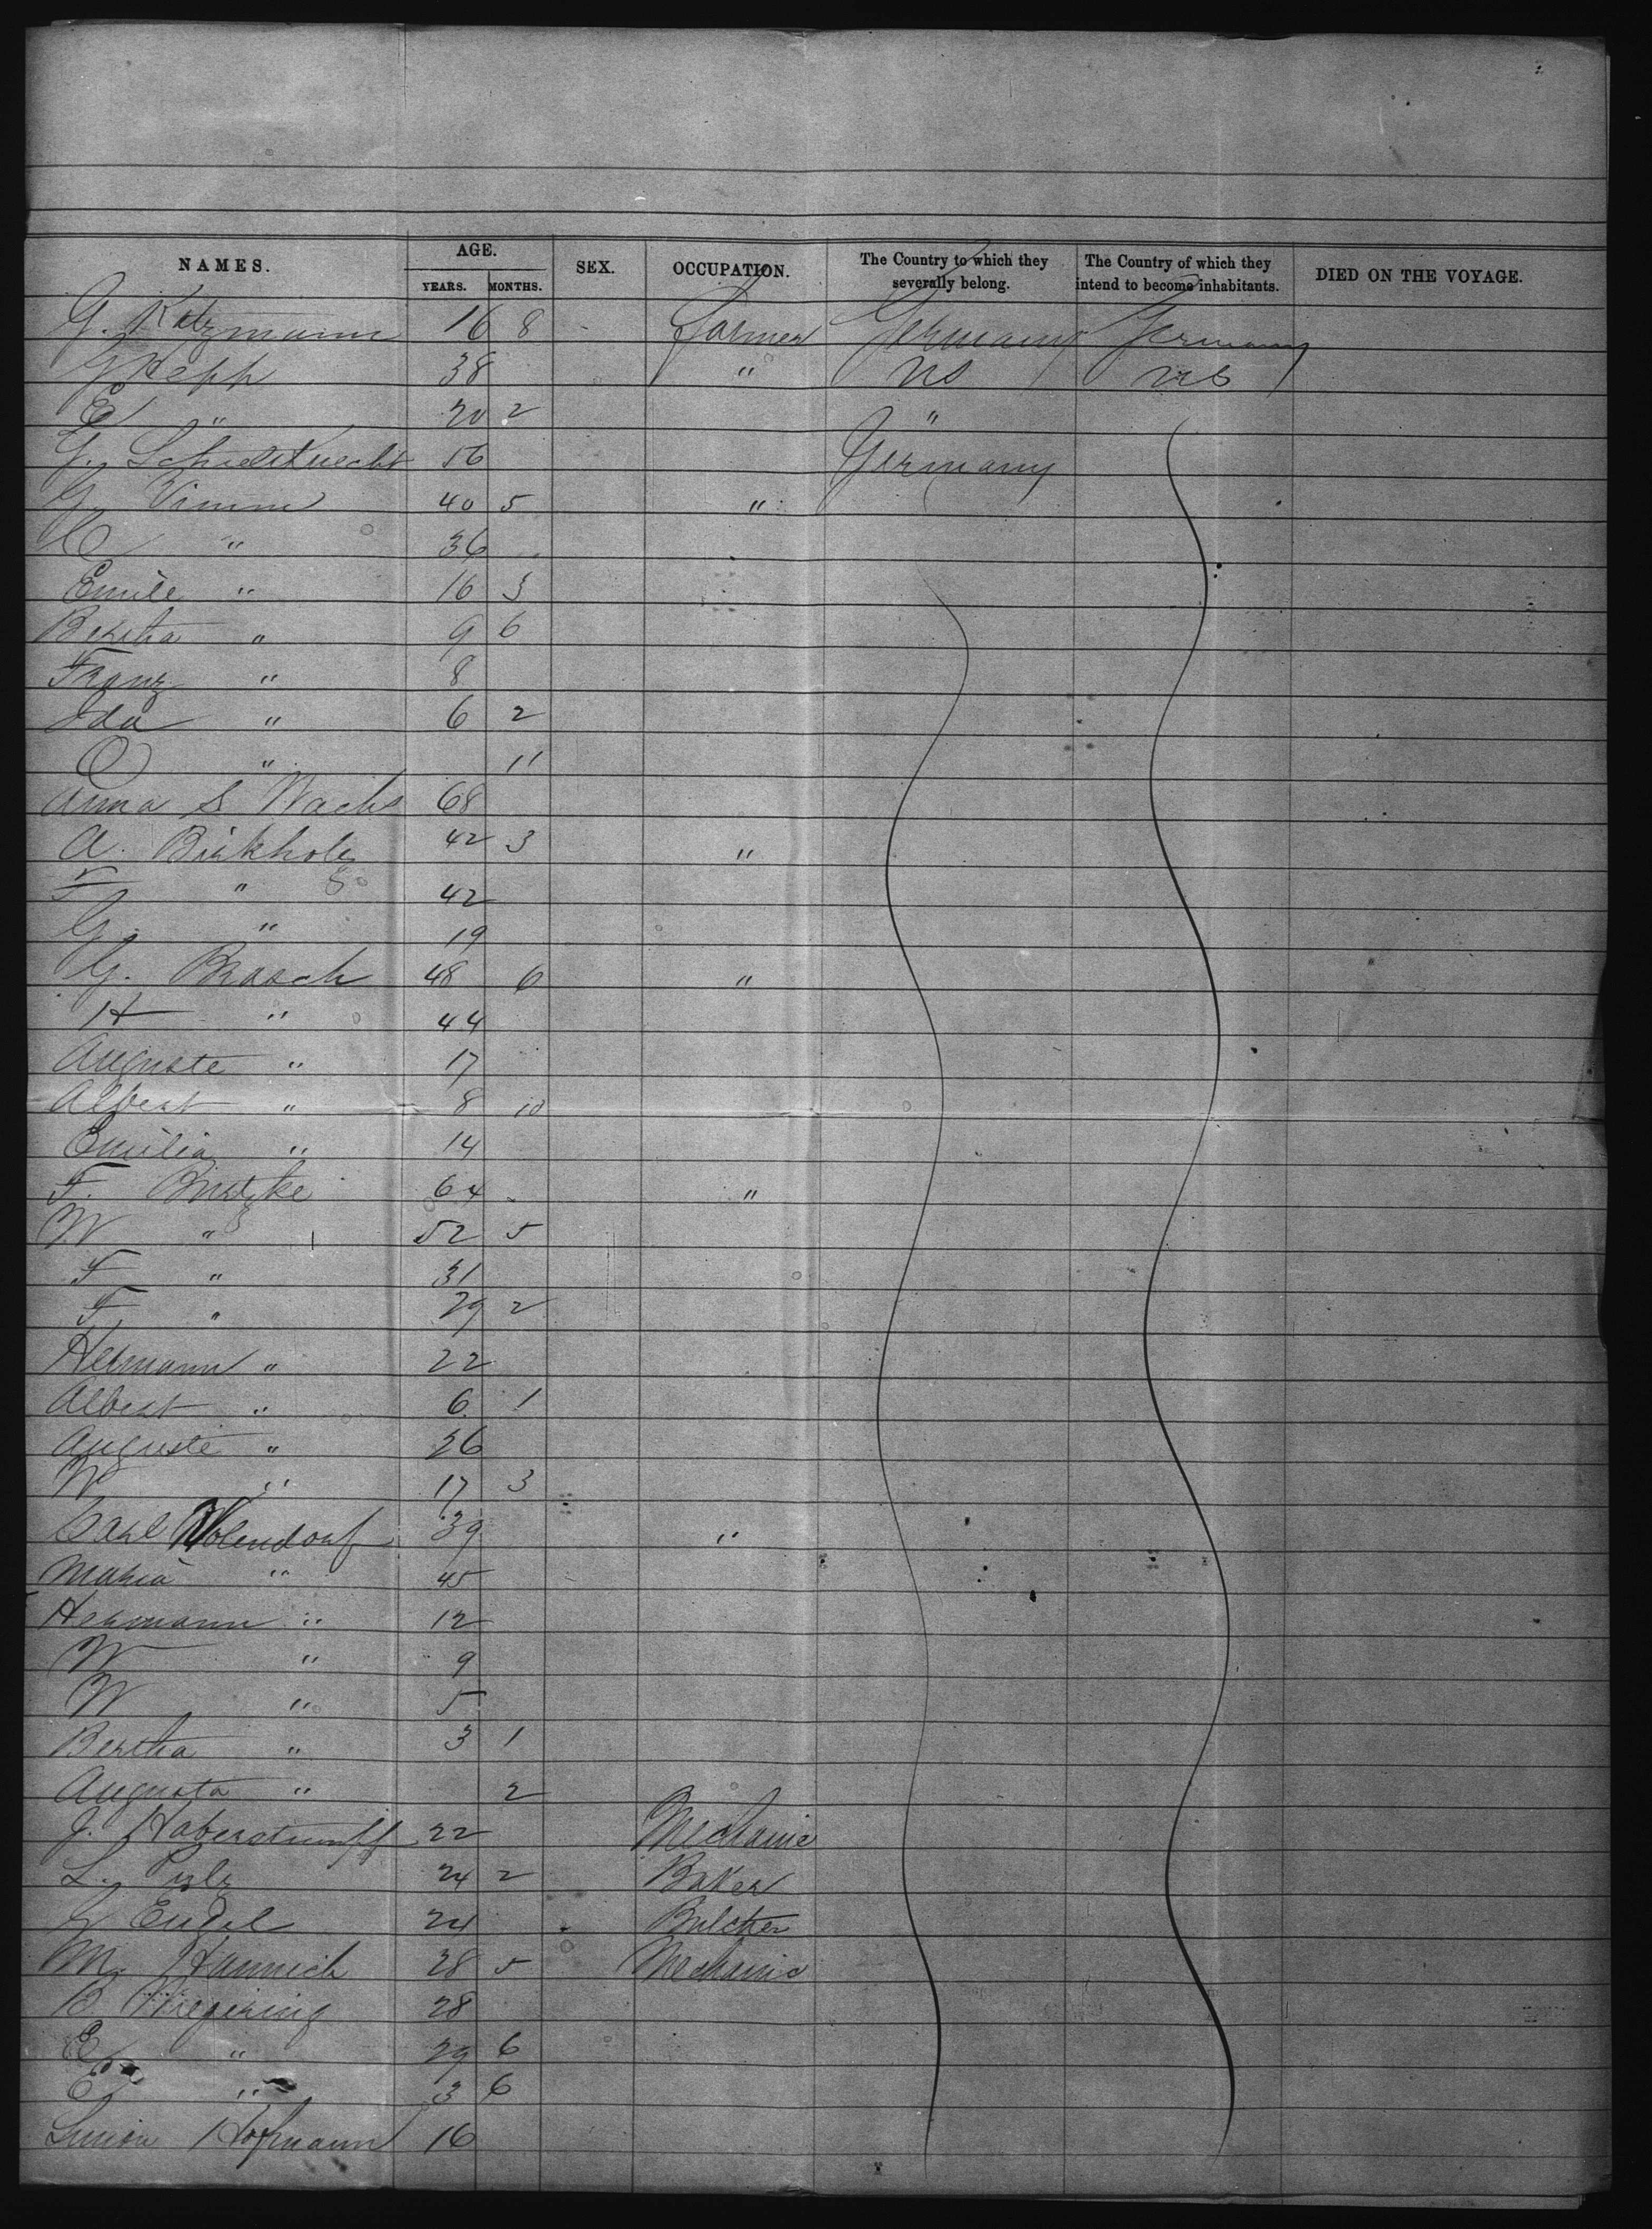 NAMES. AGE. SEX. OCCUPATION. The Country to which they severally belong. The Country of which they intend to become inhabitants. DIED ON THE VOYAGE.
YEARS. MONTHS.
G. Kotzmann 16 8 Farmer Germany Germany
G Hepp 38 " US US
E " 20 2 "
G. Schieltknecht 56 Germany
G. Vimm 40 5 "
C " 36
Emile " 16 3
Bertha " 9 6
Franz " 8
Ida " 6 2
O " 11
Anna S Wachs 68
A. Birkholz 42 3 "
F " 42
G. " 19
G. Brasch 48 6 "
H " 44
Auguste " 17
Albert " 8 10
Emilia " 14
F. Butzke 64 "
W " 52 5
F " 31
F " 29 2
Hermann " 22
Albert " 6 1
Auguste " 26
W " 17 3
Carl Wolendorf 39 "
Maria " 45
Hermann " 12
W " 9
W " 5
Bertha " 3 1
Augusta " 2
J. Haberstumpf 22 Mechanic
L. 24 2 Baker
G Eudel 24 Butcher
M. Hannich 28 5 Mechanic
B. 28
E " 29 6
E " 3 6
Hofmann 16